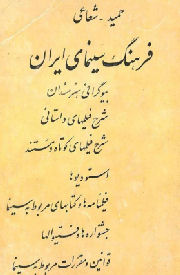 حمید . شعاعی
فرهنگ سینمای ایران
بیوگرافی هنرمندان
شرح فیلمهای داستانی
شرح فیلمهای کوتاه و مستند
استودیوها
فیلمنامه ها و کتابهای مربوط به سینما
جشنواره ها و فستیوالها
قوانین و مقررات مربوط به سینما